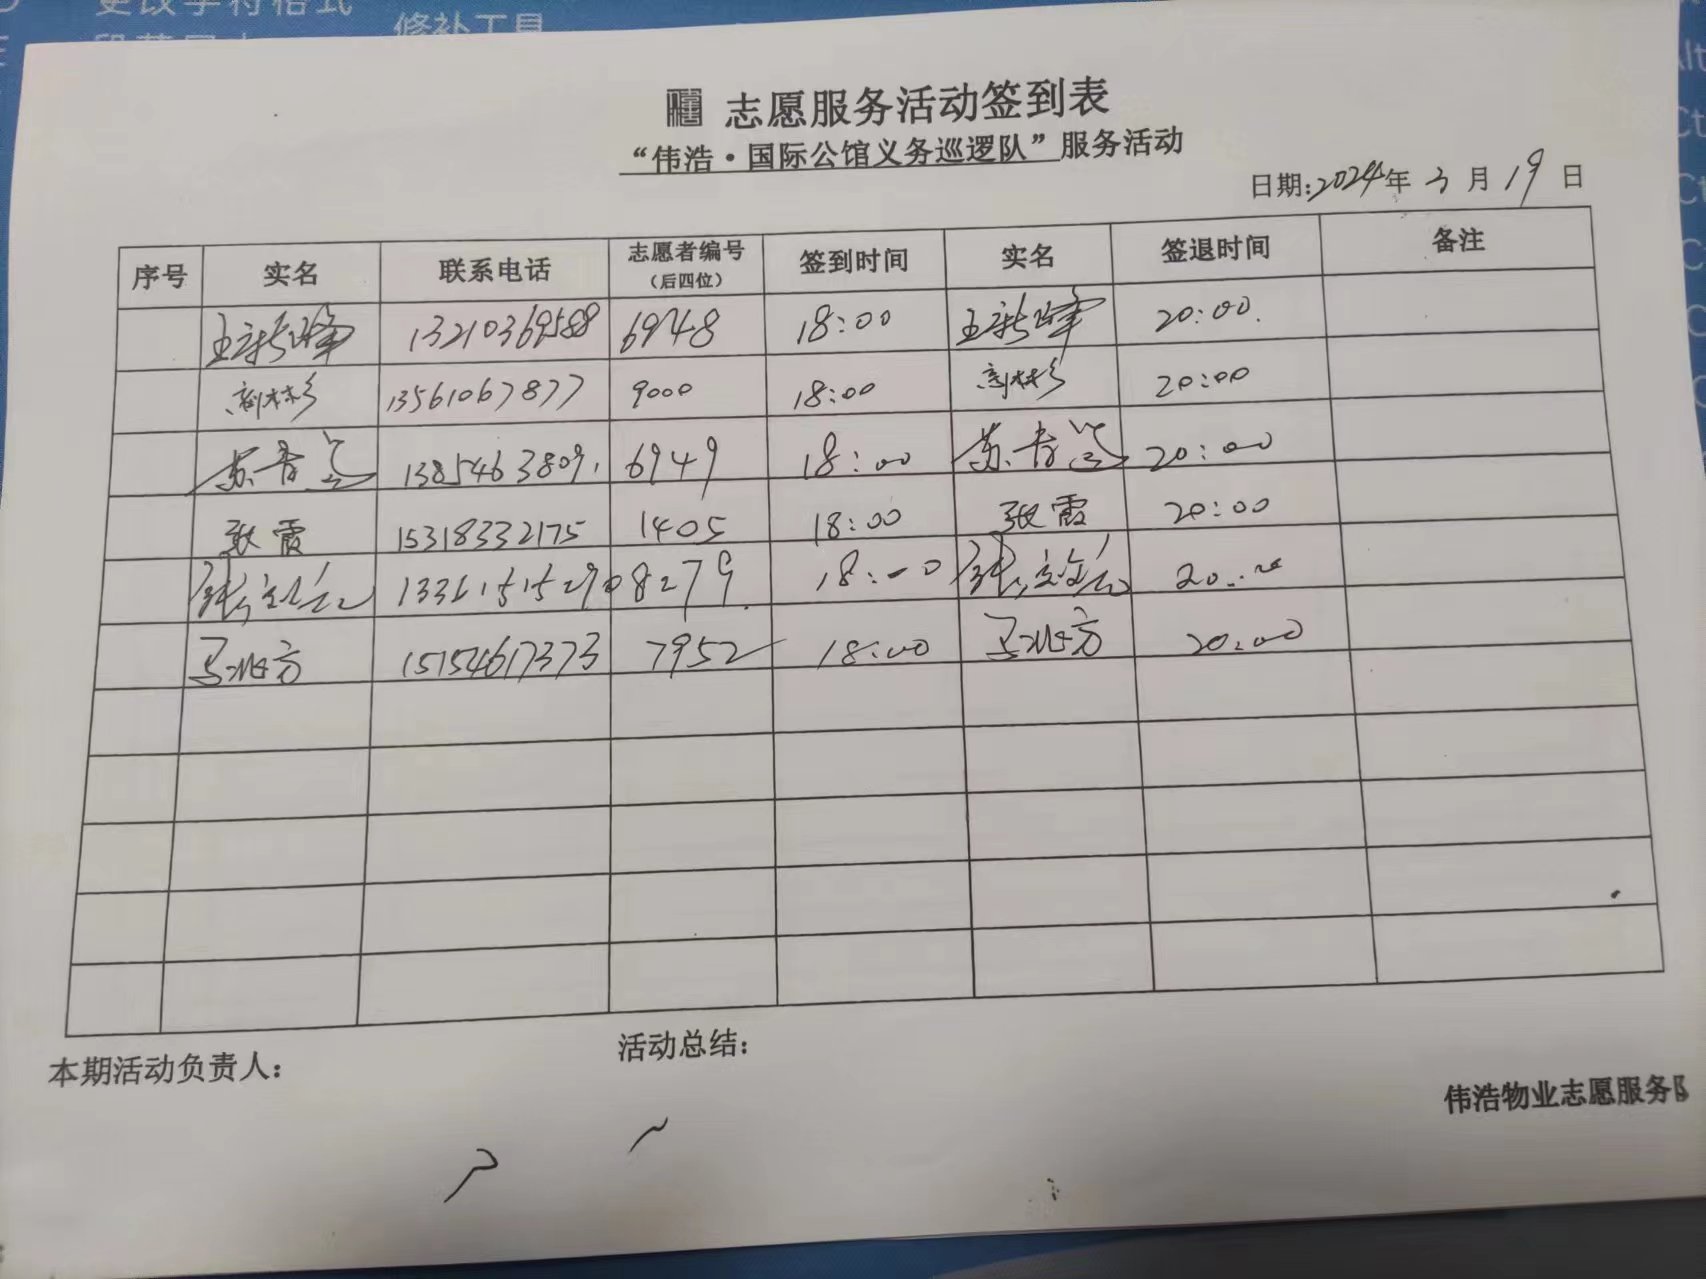 更改字符格式
修补工具
志愿服务活动签到表
“伟浩·国际公馆义务巡逻队”服务活动
日期:2024年 3 月 19 日
序号 实名 联系电话 志愿者编号（后四位） 签到时间 实名 签退时间 备注
13210369588 6948 18:00 20:00.
13561067877 9000 18:00 20:00
13854638091 6949 18:00 20:00
张霞 15318332175 1405 18:00 张霞 20:00
13361515290 8279 18:00 20:00
15154617373 7952 18:00 20:00
本期活动负责人: 活动总结:
伟浩物业志愿服务队